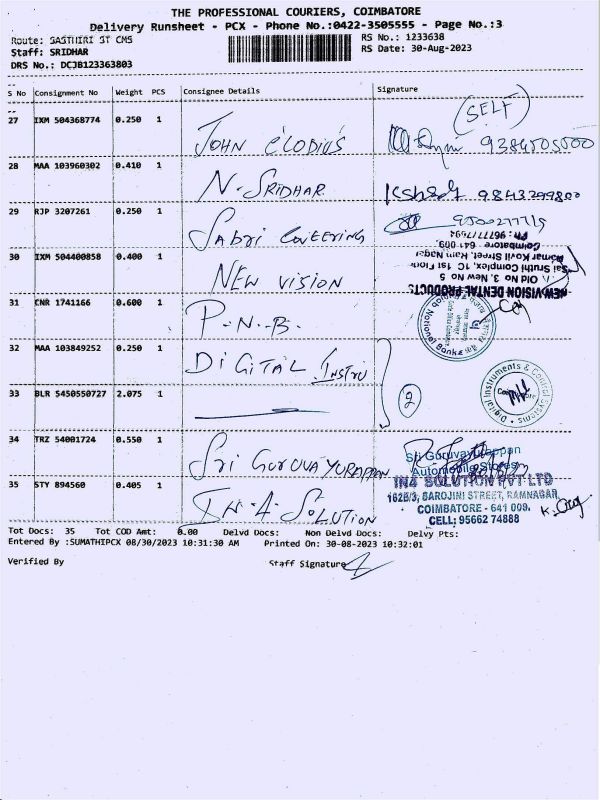 THE PROFESSIONAL COURIERS, COIMBATORE
Delivery Runsheet - PCX - Phone No.:0422-3505555 - Page No.:3
Route: SASTHIRI ST CMS
RS No.: 1233638
Staff: SRIDHAR
RS Date: 30-Aug-2023
DRS No.: DCJB123363803
S No Consignment No Weight PCS Consignee Details Signature
(SELF)
27 IXM 504368774 0.250 1 JOHN 9384505500
28 MAA 103960302 0.410 1 N. SRIDHAR 9843299800
29 RJP 3207261 0.250 1 Sabri
Ph : 9677777594
Coimbatore 641 009.
Street, Ram Nagar
Sai Sruthi Complex, 1C 1st Floor
Old No 3, New No 5
NEW VISION DENTAL PRODUCTS
30 IXM 504400858 0.400 1 NEW VISION
31 CNR 1741166 0.600 1 P.N.B.
Punjab National Bank
32 MAA 103849252 0.250 1 DIGITAL Instru
33 BLR 5450550727 2.075 1
2
Digital Instruments & Control Systems
34 TRZ 54001724 0.550 1 Sri GURUVAYURAPPAN
Sri Guruvayurappan
Automobile Stores
35 STY 894560 0.405 1 IN-4-SOLUTION
IN4 SOLUTION PVT LTD
1628/3, SAROJINI STREET, RAMNAGAR,
COIMBATORE - 641 009.
CELL: 95662 74888
Tot Docs: 35 Tot COD Amt: 0.00 Delvd Docs: Non Delvd Docs: Delvy Pts:
Entered By :SUMATHIPCX 08/30/2023 10:31:30 AM Printed On: 30-08-2023 10:32:01
Verified By Staff Signature